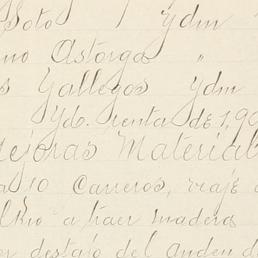 Soto Ydm
no Astorga "
s Gallegos Ydm
Yd. renta de 1,90
ejoras Material
a 10 Carreros, viaje
Rio a traer madera
or destajo del anden d